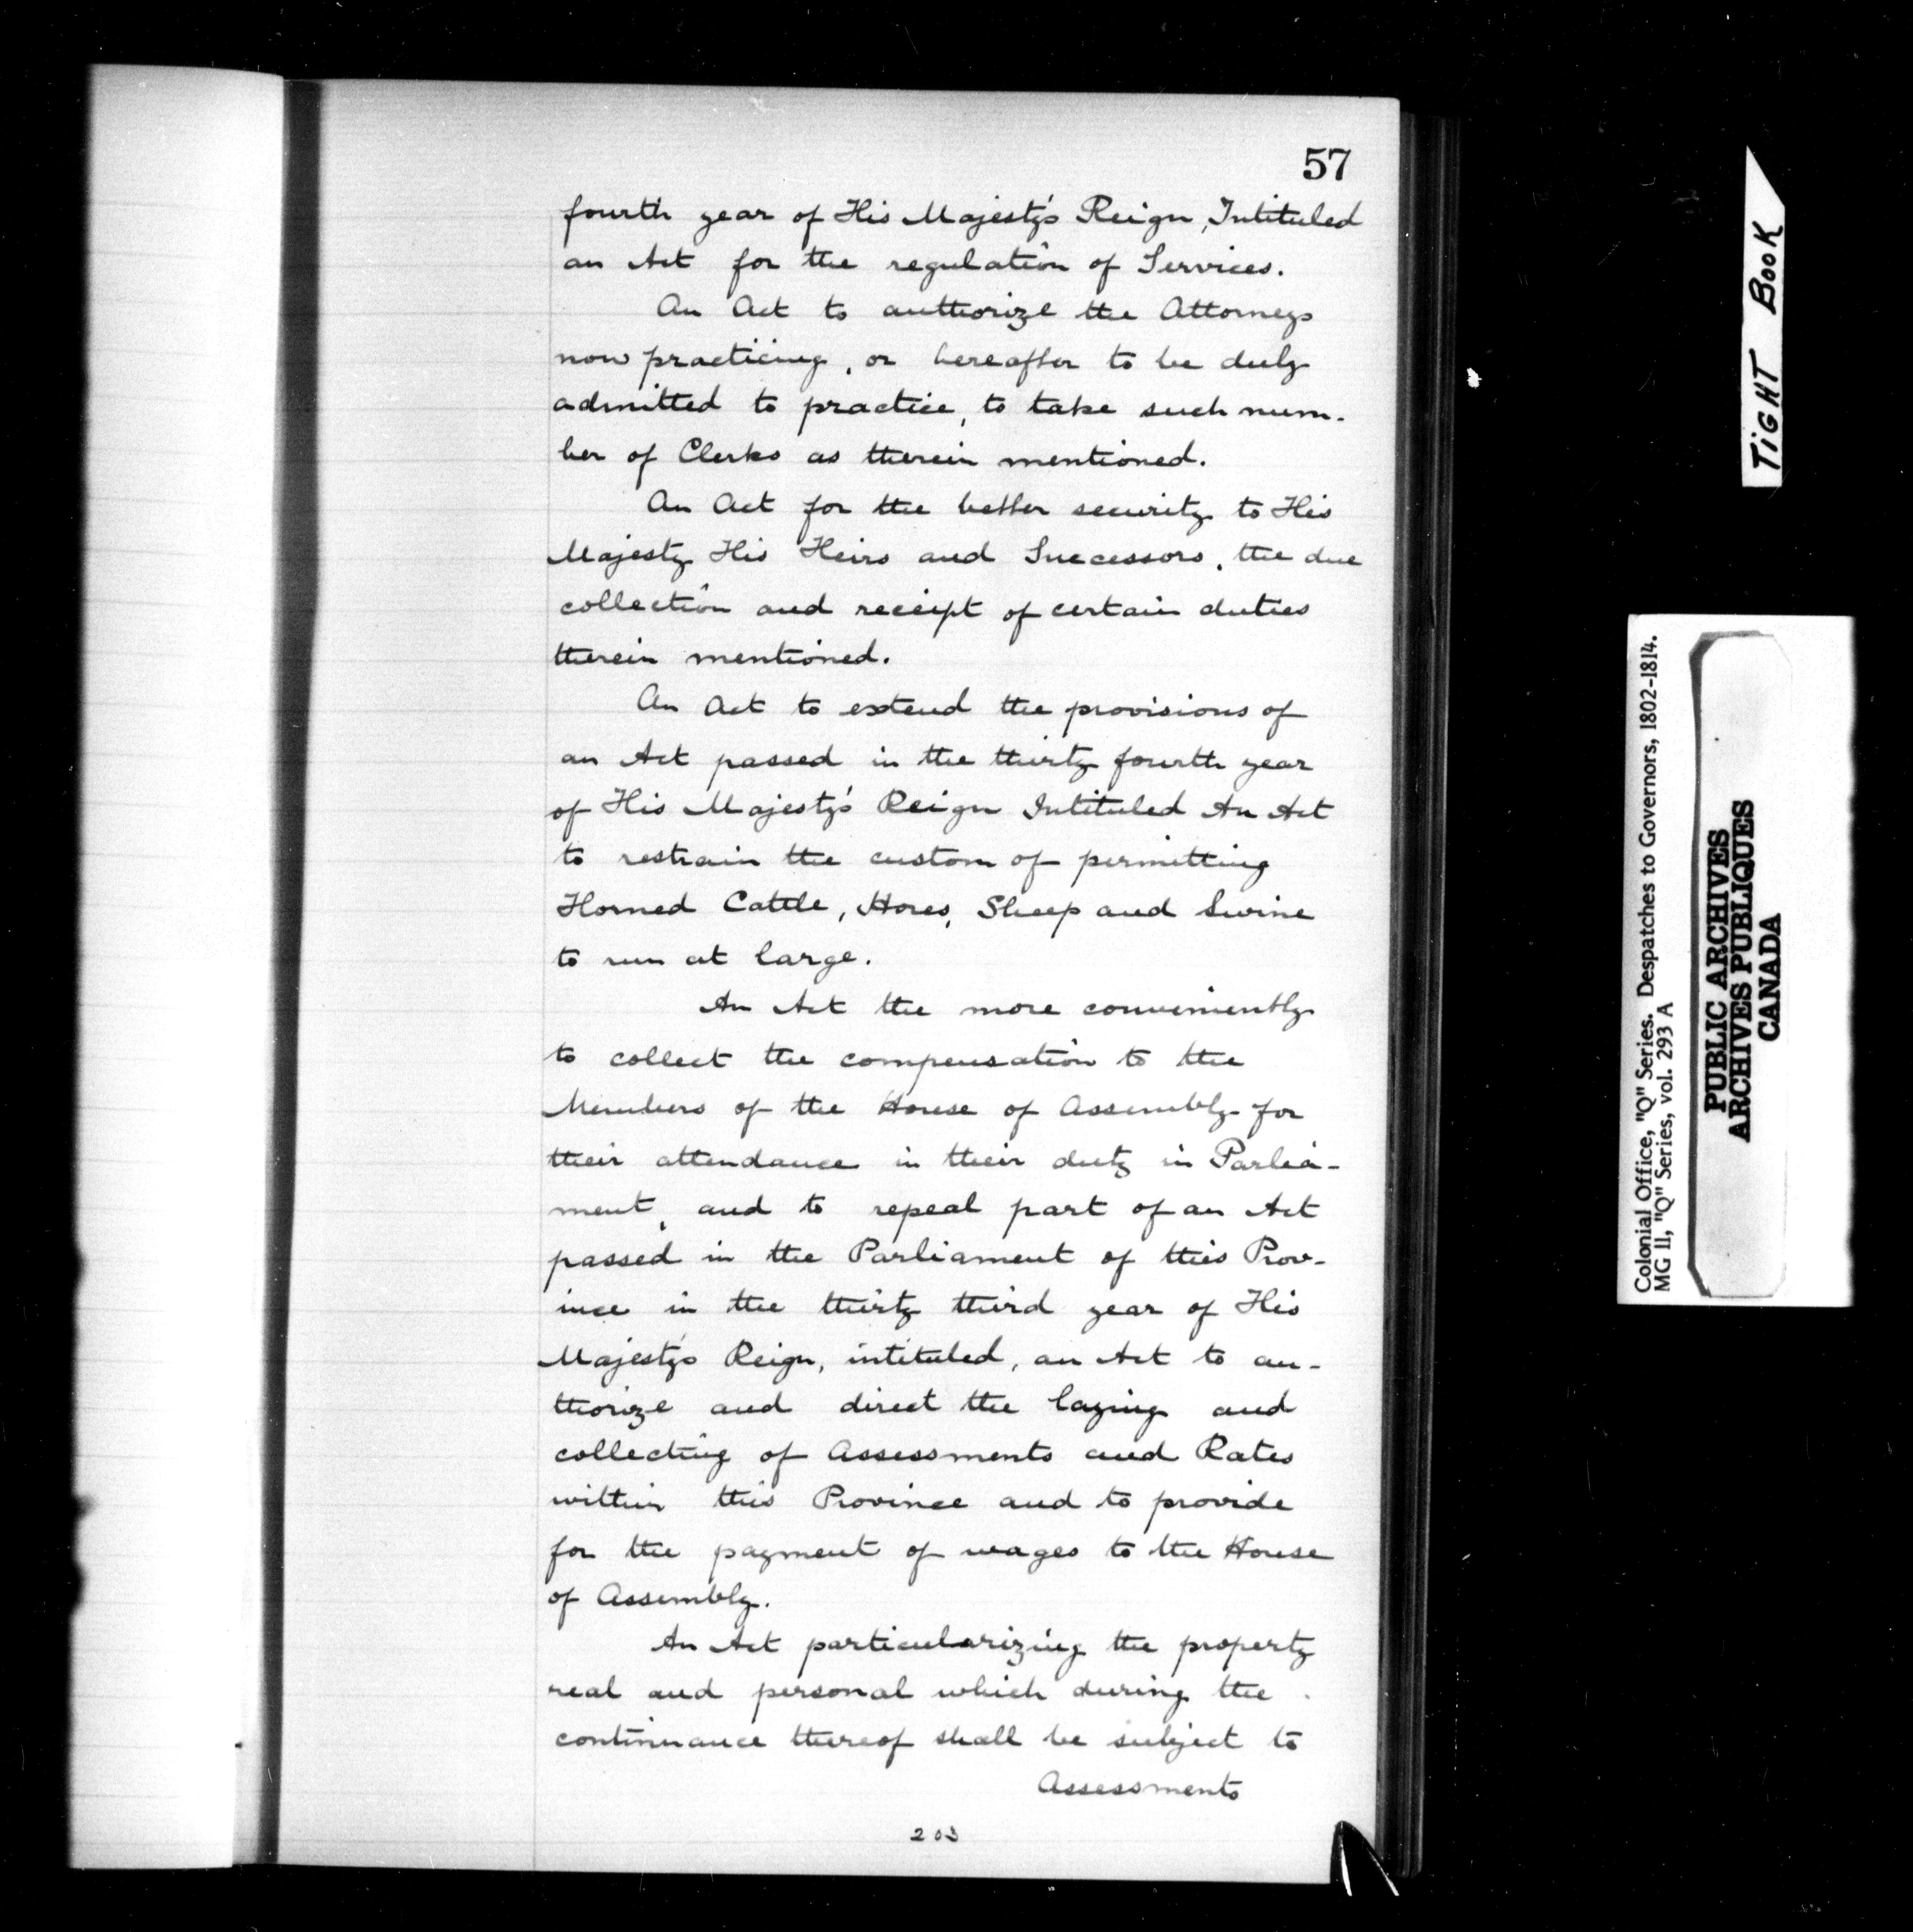 57
fourth year of His Majesty's Reign, Intituled
an Act for the regulation of Services.
An Act to authorize the Attorneys
now practicing, or hereafter to be duly
admitted to practice, to take such num-
ber of Clerks as therein mentioned.
An Act for the better security to His
Majesty His Heirs and Successors, the due
collection and receipt of certain duties
therein mentioned.
An Act to extend the provisions of
an Act passed in the thirty fourth year
of His Majesty's Reign Intituled An Act
to restrain the custom of permitting
Horned Cattle, Hores, Sheep and Swine
to run at large.
An Act the more conveniently
to collect the compensation to the
Members of the House of Assembly for
their attendance in their duty in Parlia-
ment, and to repeal part of an Act
passed in the Parliament of this Prov-
ince in the thirty third year of His
Majesty's Reign, intituled, an Act to au-
thorize and direct the laying and
collecting of Assessments and Rates
within this Province and to provide
for the payment of wages to the House
of Assembly.
An Act particularizing the property
real and personal which during the
continuance thereof shall be subject to
Assessments
203
TIGHT BOOK
Colonial Office, "Q" Series. Despatches to Governors, 1802-1814.
MG 11, "Q" Series, vol. 293 A
PUBLIC ARCHIVES
ARCHIVES PUBLIQUES
CANADA